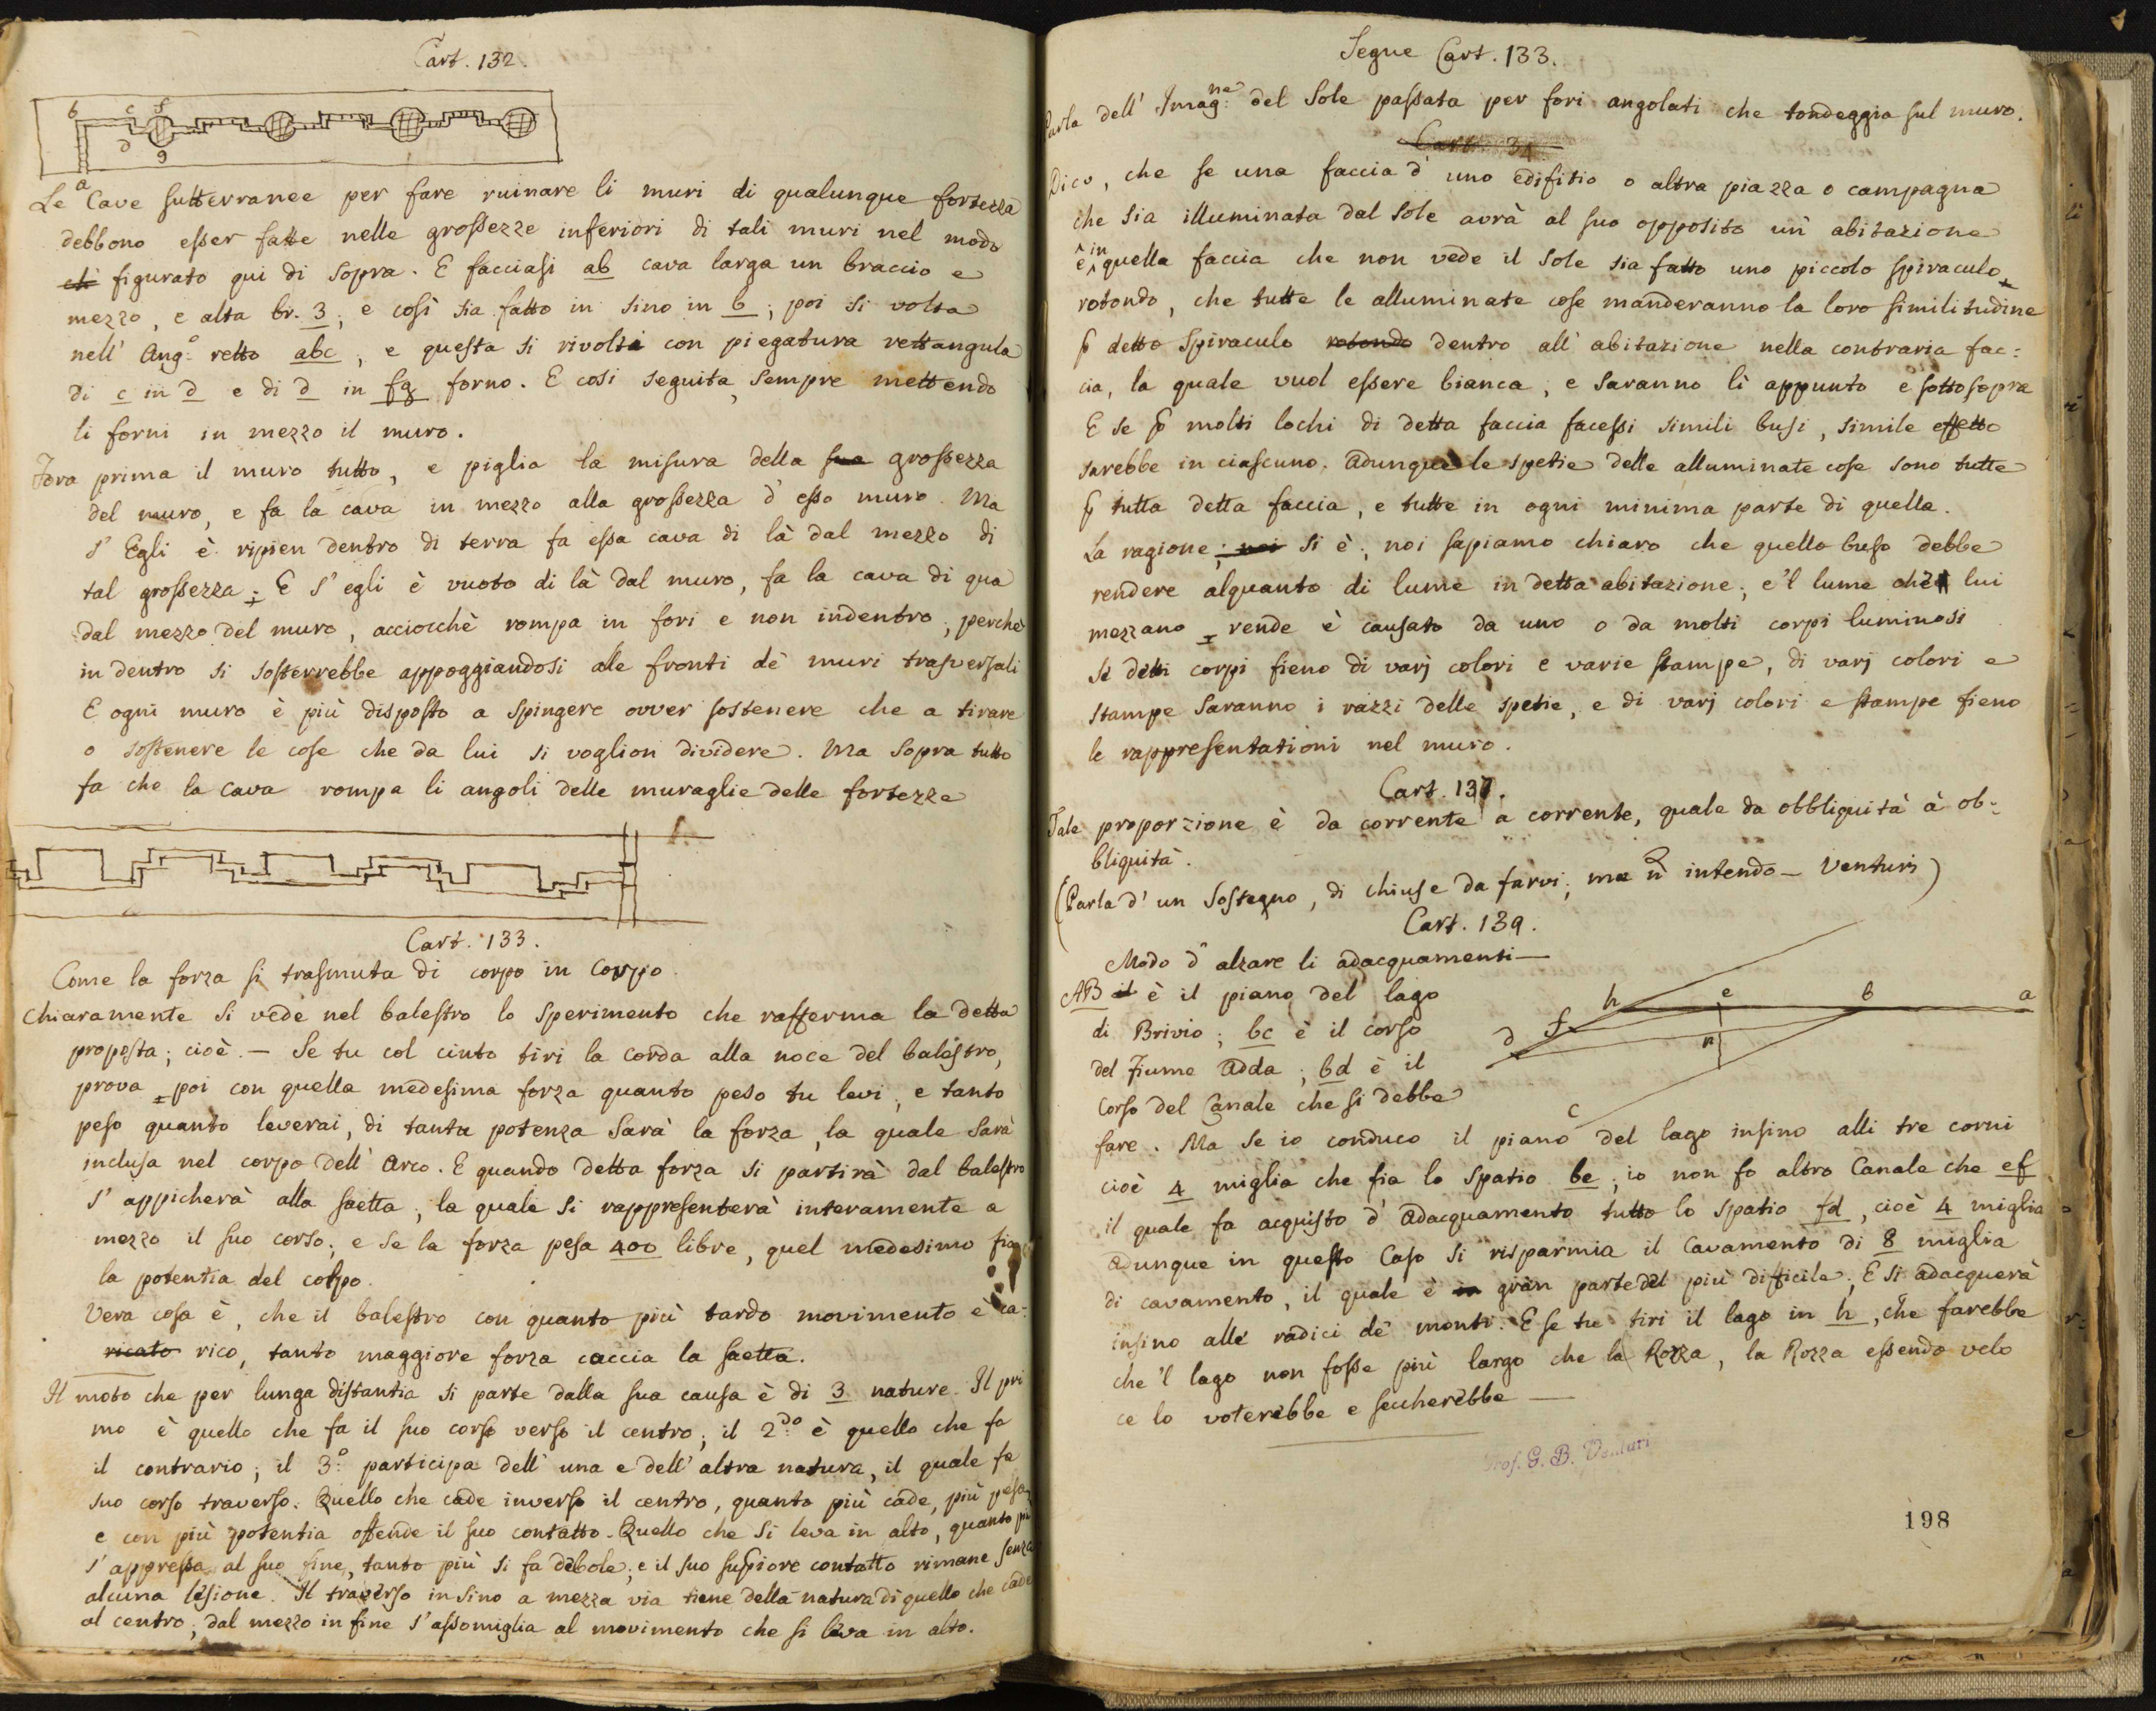 Cart. 132.
b c f
d
g
a
Le Cave sutterranee per fare ruinare li muri di qualunque fortezza
debbono esser fatte nelle grossezze inferiori di tali muri nel modo
figurato qui di sopra. E facciasi ab cava larga un braccio e
mezzo, e alta br. 3; e così sia fatto in sino in b; poi si volta
nell' Ang.o retto abc, e questa si rivolti con piegatura rettangula
di c in d e di d in fg forno. E cosi seguita, sempre mettendo
li forni in mezzo il muro.
Fora prima il muro tutto, e piglia la misura della sua grossezza
del muro, e fa la cava in mezzo alla grossezza d' esso muro. Ma
s' Egli è ripien dentro di terra fa essa cava di là dal mezzo di
tal grossezza; E s' egli è vuoto di là dal muro, fa la cava di qua
dal mezzo del muro, acciocchè rompa in fori e non indentro; perchè
in dentro si sosterrebbe appoggiandosi alle fronti de' muri trasversali
E ogni muro è più disposto a spingere ovver sostenere che a tirare
o sostenere le cose che da lui si voglion dividere. Ma sopra tutto
fa che la cava rompa li angoli delle muraglie delle fortezze
Cart. 133.
Come la forza si trasmuta di corpo in corpo.
Chiaramente si vede nel balestro lo sperimento che rafferma la detta
proposta; cioè. — Se tu col cinto tiri la corda alla noce del balestro,
prova poi con quella medesima forza quanto peso tu levi; e tanto
peso quanto leverai, di tanta potenza sarà la forza, la quale sarà
inclusa nel corpo dell' Arco. E quando detta forza si partirà dal balestro
s' appicherà alla saetta, la quale si rappresenterà interamente a
mezzo il suo corso; e se la forza pesa 400 libre, quel medesimo fia
la potentia del colpo.
Vera cosa è, che il balestro con quanto più tardo movimento è ca:
ricato rico, tanto maggiore forza caccia la saetta.
Il moto che per lunga distantia si parte dalla sua causa è di 3 nature. Il pri
mo è quello che fa il suo corso verso il centro; il 2.do è quello che fa
il contrario; il 3.o participa dell' una e dell' altra natura, il quale fa
suo corso traverso. Quello che cade inverso il centro, quanto più cade, più pesa,
e con più potentia offende il suo contatto. Quello che si leva in alto, quanto più
s' appressa al suo fine, tanto più si fa debole; e il suo supiore contatto rimane senza
alcuna lesione. Il traverso insino a mezza via tiene della natura di quello che cade
al centro; dal mezzo in fine s' assomiglia al movimento che si leva in alto.
Segue Cart. 133.
Parla dell' Imag.ne del Sole passata per fori angolati che tondeggia sul muro.
Cart. 34
Dico, che se una faccia d' uno edifitio o altra piazza o campagna
che sia illuminata dal Sole avrà al suo opposito un' abitazione
e in quella faccia che non vede il Sole sia fatto uno piccolo spiraculo
rotondo, che tutte le alluminate cose manderanno la loro similitudine
p detto spiraculo rotondo dentro all' abitazione nella contraria fac:
cia, la quale vuol essere bianca, e saranno lì appunto e sottosopra
E se p molti lochi di detta faccia facessi simili busi, simile effetto
sarebbe in ciascuno. Adunque le spetie delle alluminate cose sono tutte
p tutta detta faccia, e tutte in ogni minima parte di quella.
La ragione; noi si è; noi sapiamo chiaro che quello buso debbe
rendere alquanto di lume in detta abitazione; e'l lume che lui
mezzano rende è causato da uno o da molti corpi luminosi
se detti corpi fieno di varj colori e varie stampe, di varj colori e
stampe saranno i razzi delle spetie, e di varj colori e stampe fieno
le rappresentationi nel muro.
Cart. 137.
Tale proporzione è da corrente a corrente, quale da obbliquità à ob-
bliquità.
(Parla d' un Sostegno, di chiuse da farvi; ma ñ intendo — Venturi)
Cart. 139.
Modo d' alzare li adacquamenti —
AB è il piano del lago
di Brivio; bc è il corso
del Fiume Adda; bd è il
corso del Canale che si debbe
h e b a
d f
n
c
fare. Ma se io conduco il piano del lago insino alli tre corni
cioè 4 miglia che fia lo spatio be; io non fo altro Canale che ef
il quale fa acquisto d' Adacquamento tutto lo spatio fd, cioè 4 miglia
Adunque in questo caso si risparmia il cavamento di 8 miglia
di cavamento, il quale è in gran parte del più difficile; E si adacquerà
insino alle radici de' monti. E se tu tiri il lago in h, che farebbe
che 'l lago non fosse più largo che la Rozza, la Rozza essendo velo
ce lo voterebbe e seccherebbe —
Prof. G. B. Venturi
198